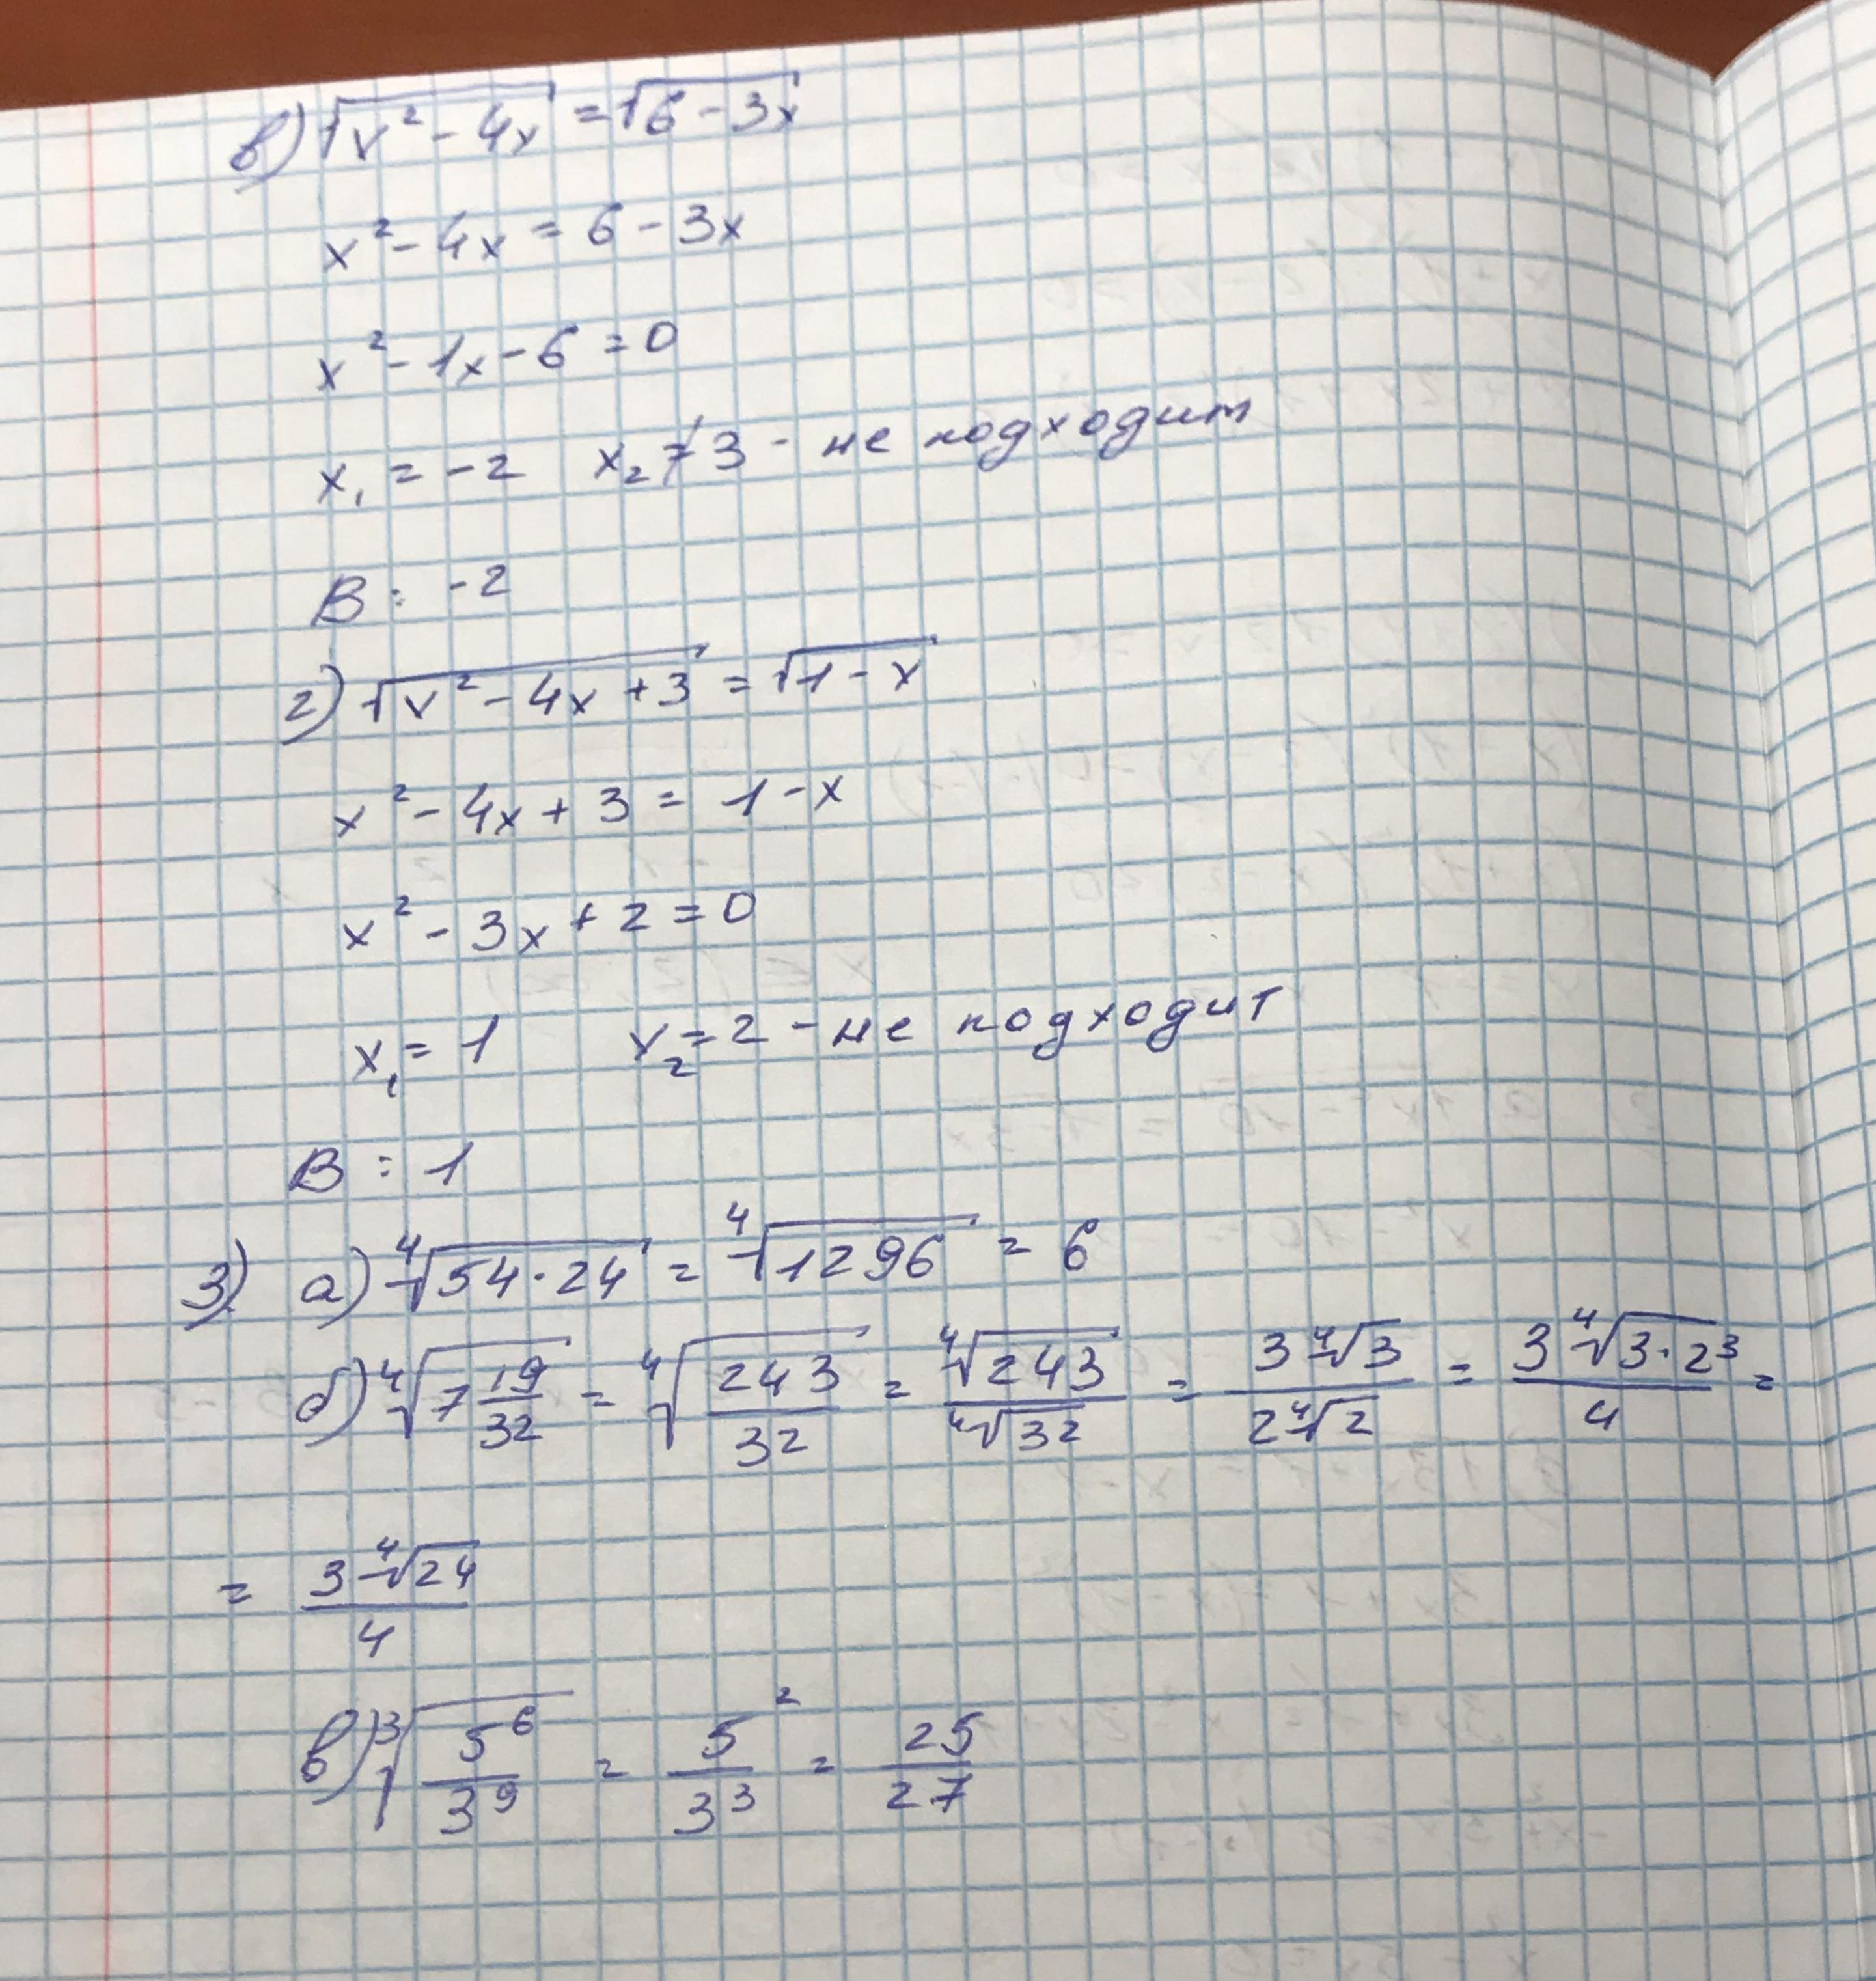 в) √(x² - 4x) = √(6 - 3x)
x² - 4x = 6 - 3x
x² - 1x - 6 = 0
x₁ = -2 x₂ ≠ 3 - не подходит
В: -2
г) √(x² - 4x + 3) = √(1 - x)
x² - 4x + 3 = 1 - x
x² - 3x + 2 = 0
x₁ = 1 x₂ = 2 - не подходит
В: 1
3) а) ⁴√(54 · 24) = ⁴√1296 = 6
б) ⁴√(7 19/32) = ⁴√(243/32) = ⁴√243 / ⁴√32 = 3⁴√3 / 2⁴√2 = 3⁴√(3·2³) / 4 =
= 3⁴√24 / 4
в) ³√(5⁶/3⁹) = 5²/3³ = 25/27